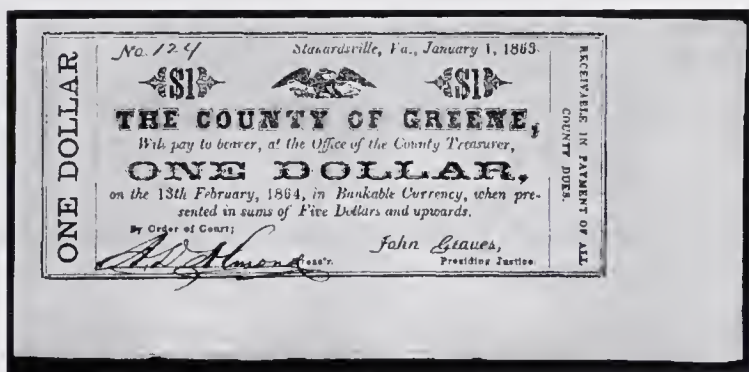 ONE DOLLAR
No. 124
Stanardsville, Va., January 1, 1863.
$1 $1
THE COUNTY OF GREENE,
Will pay to bearer, at the Office of the County Treasurer,
ONE DOLLAR,
on the 13th February, 1864, in Bankable Currency, when pre-
sented in sums of Five Dollars and upwards.
By Order of Court;
A D Almond Treas'r.
John Graves,
Presiding Justice.
RECEIVABLE IN PAYMENT OF ALL
COUNTY DUES.